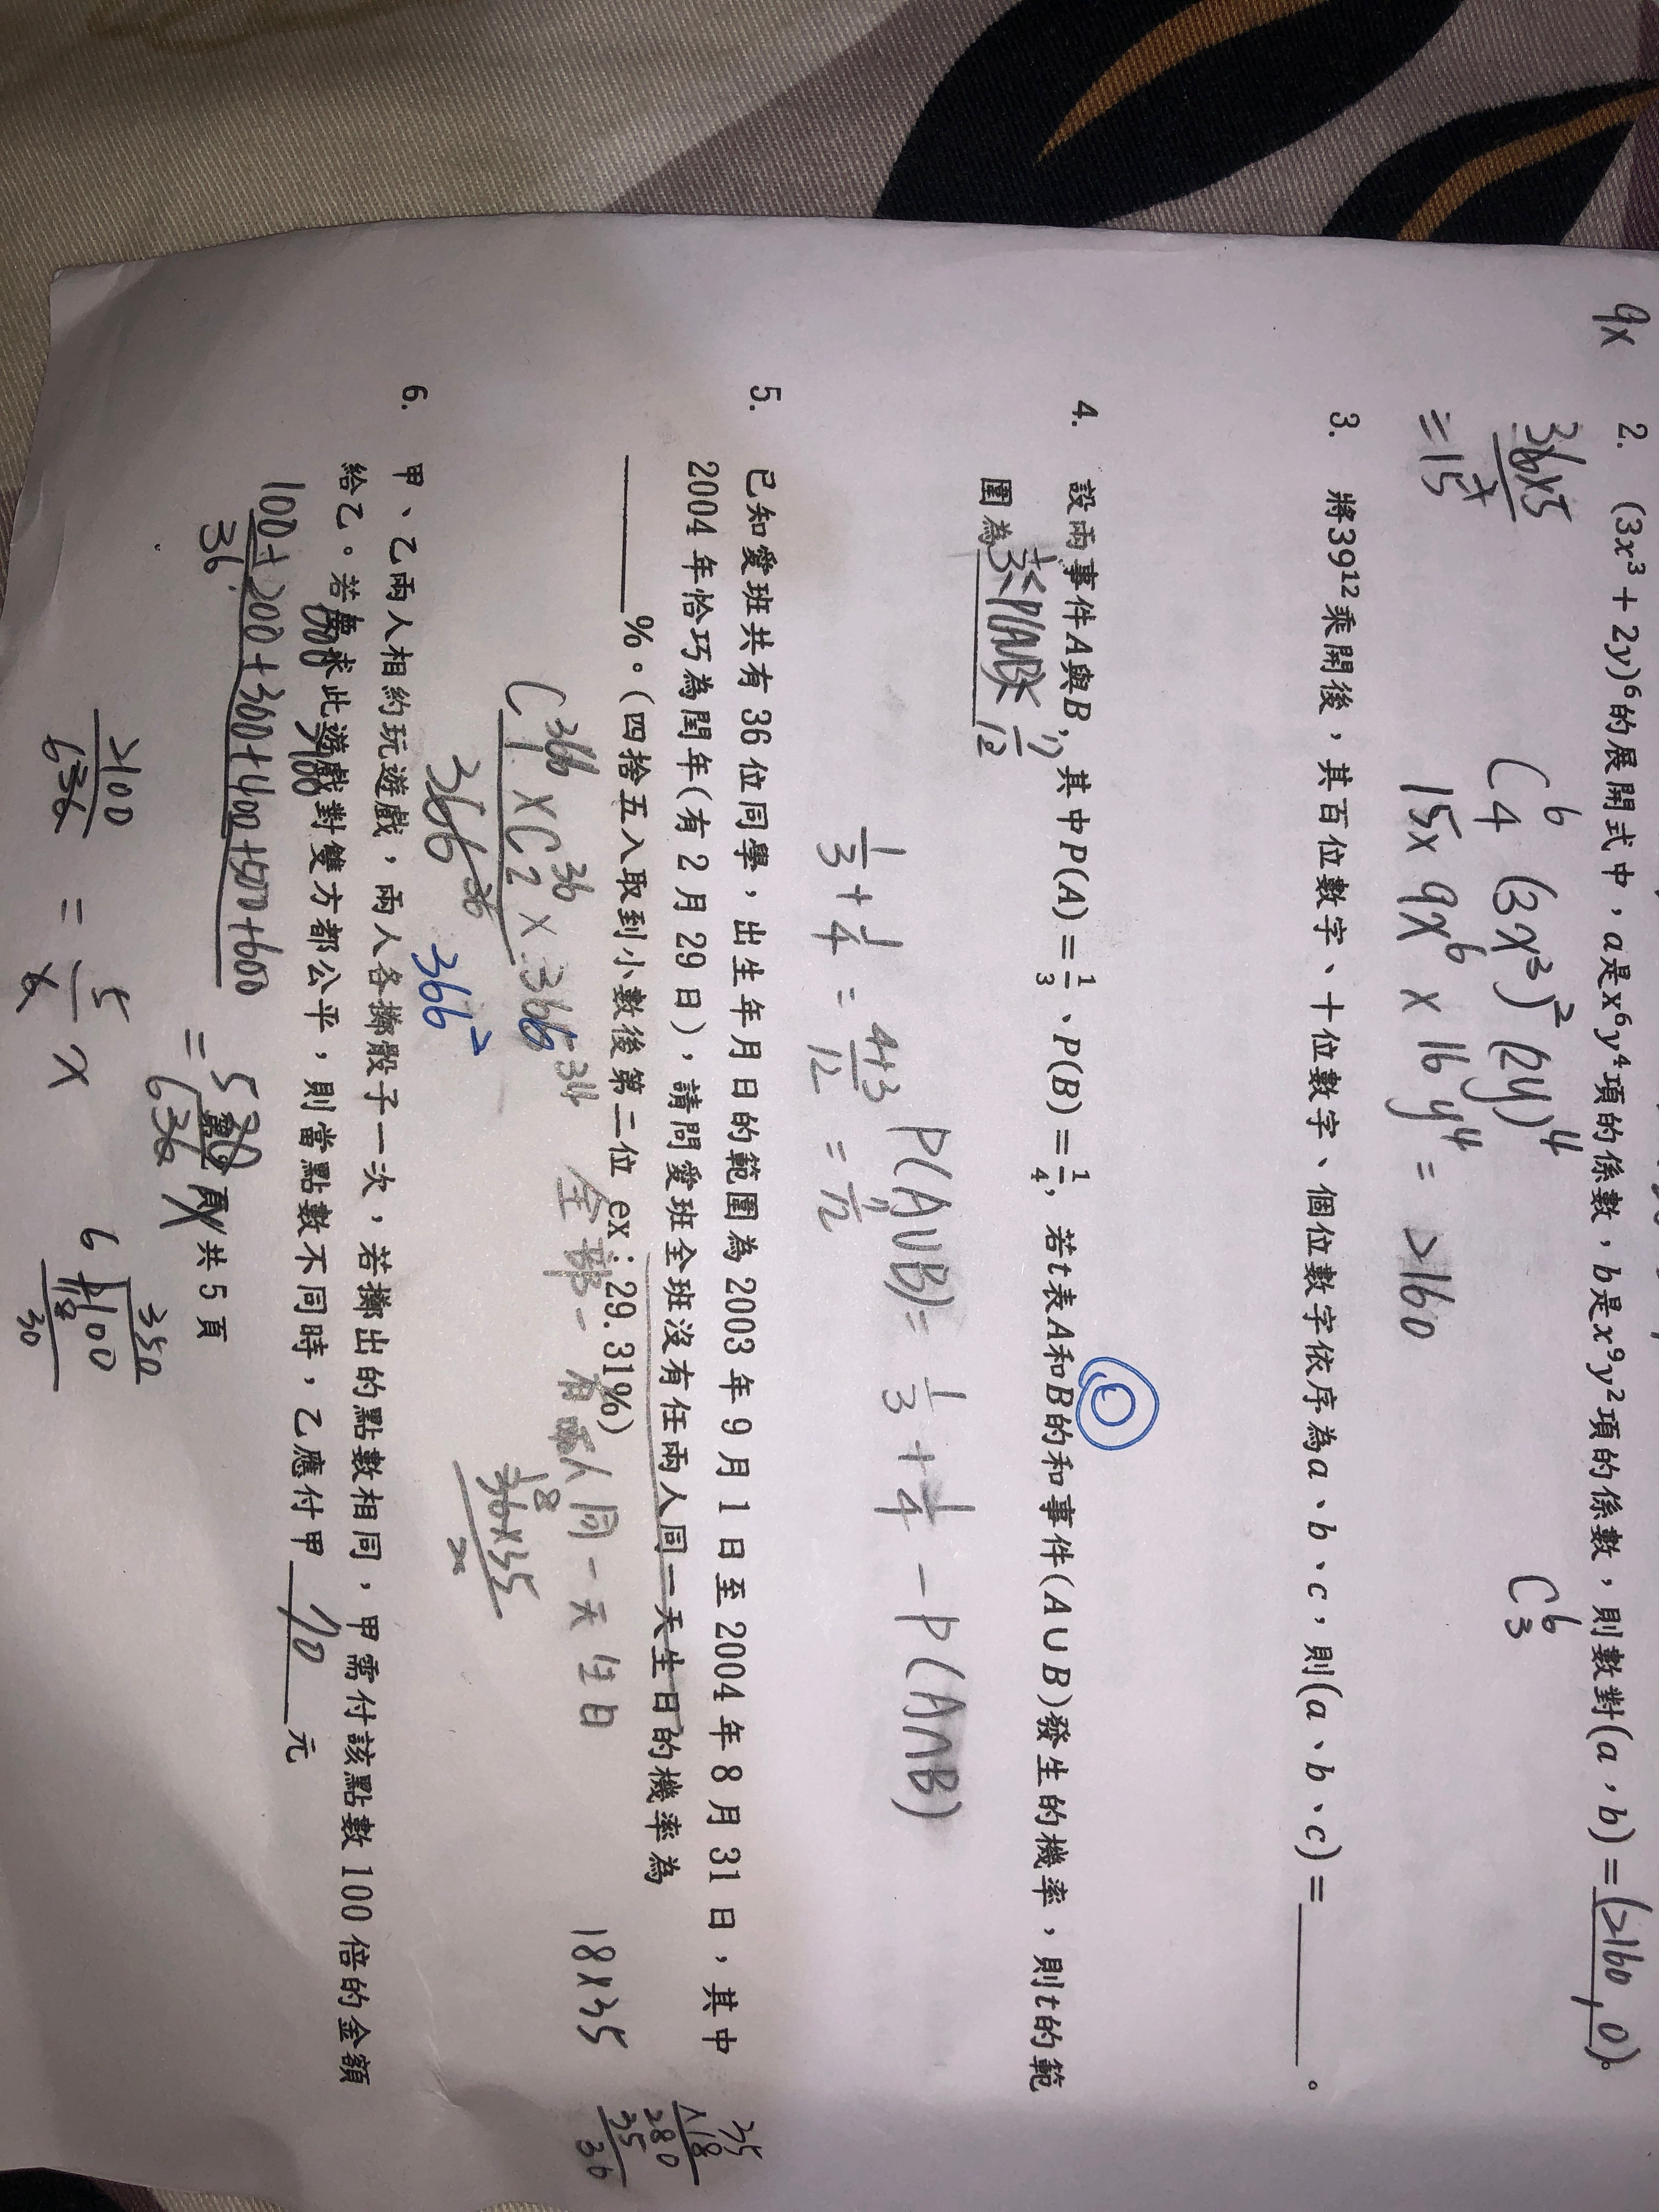 9x
2. (3x³+2y)⁶的展開式中，a是x⁶y⁴項的係數，b是x⁹y²項的係數，則數對(a，b)=(2160,0)。
C⁶₄ (3x³)² (2y)⁴
C⁶₃
=15
15x 9x⁶ x 16y⁴ = 2160
3. 將39¹²乘開後，其百位數字、十位數字、個位數字依序為a、b、c，則(a、b、c)=______。
4. 設兩事件A與B，其中P(A)=1/3、P(B)=1/4，若t表A和B的和事件(A∪B)發生的機率，則t的範
圍為 1/3≤P(A∪B)≤7/12
P(A∪B)= 1/3 + 1/4 - P(A∩B)
1/3 + 1/4 = 4+3/12 = 7/12
5. 已知愛班共有36位同學，出生年月日的範圍為2003年9月1日至2004年8月31日，其中
2004年恰巧為閏年(有2月29日)，請問愛班全班沒有任兩人同一天生日的機率為
______%。(四捨五入取到小數後第二位 ex：29.31%)
全部- 有兩人同一天生日
18x35
35
x18
280
35
36x35
18
2
366²
6. 甲、乙兩人相約玩遊戲，兩人各擲骰子一次，若擲出的點數相同，甲需付該點數100倍的金額
給乙。若要求此遊戲對雙方都公平，則當點數不同時，乙應付甲 70 元
100+200+300+400+500+600
36
共5頁
2100
= 5/6 x
350
6 2100
18
30